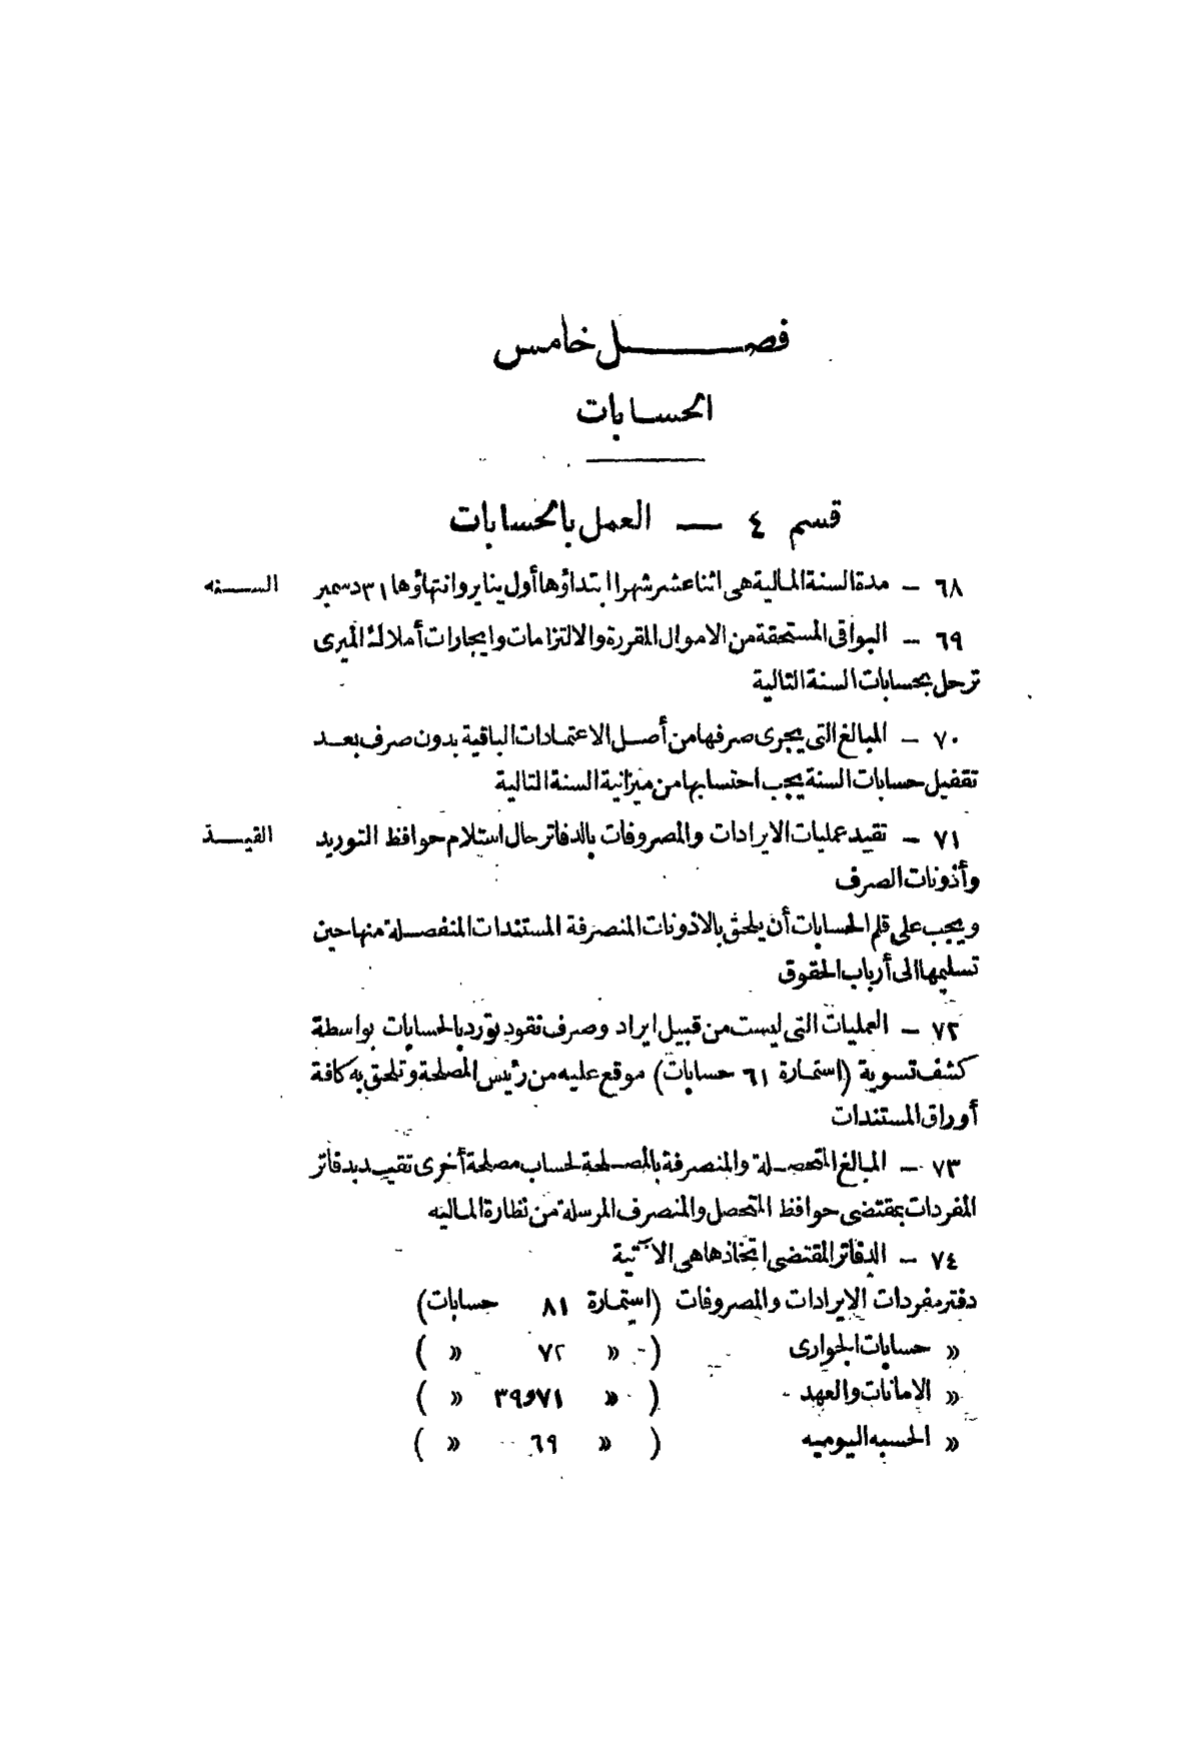 فصل خامس
الحسابات
قسم ٤ — العمل بالحسابات
السنه
٦٨ — مدة السنة المالية هى اثنا عشر شهرا ابتداؤها أول يناير وانتهاؤها ٣١ دسمبر
٦٩ — البواقى المستحقة من الاموال المقررة والالتزامات وايجارات أملاك الميرى
ترحل بحسابات السنة التالية
٧٠ — المبالغ التى يجرى صرفها من أصل الاعتمادات الباقية بدون صرف بعد
تقفيل حسابات السنة يجب احتسابها من ميزانية السنة التالية
القيد
٧١ — تقيد عمليات الايرادات والمصروفات بالدفاتر حال استلام حوافظ التوريد
وأذونات الصرف
ويجب على قلم الحسابات أن يلحق بالاذونات المنصرفة المستندات المنفصلة منها حين
تسليمها الى أرباب الحقوق
٧٢ — العمليات التى ليست من قبيل ايراد وصرف نقود تورد بالحسابات بواسطة
كشف تسوية (استمارة ٦١ حسابات) موقع عليه من رئيس المصلحة وتلحق به كافة
أوراق المستندات
٧٣ — المبالغ المتحصلة والمنصرفة بالمصلحة لحساب مصلحة أخرى تقيد بدفاتر
المفردات بمقتضى حوافظ المتحصل والمنصرف المرسلة من نظارة الماليه
٧٤ — الدفاتر المقتضى اتخاذها هى الآتية
دفتر مفردات الايرادات والمصروفات (استمارة ٨١ حسابات)
« حسابات الجوارى ( « ٧٢ « )
« الامانات والعهد ( « ٧١ و٣٩ « )
« الحسبه اليوميه ( « ٦٩ « )